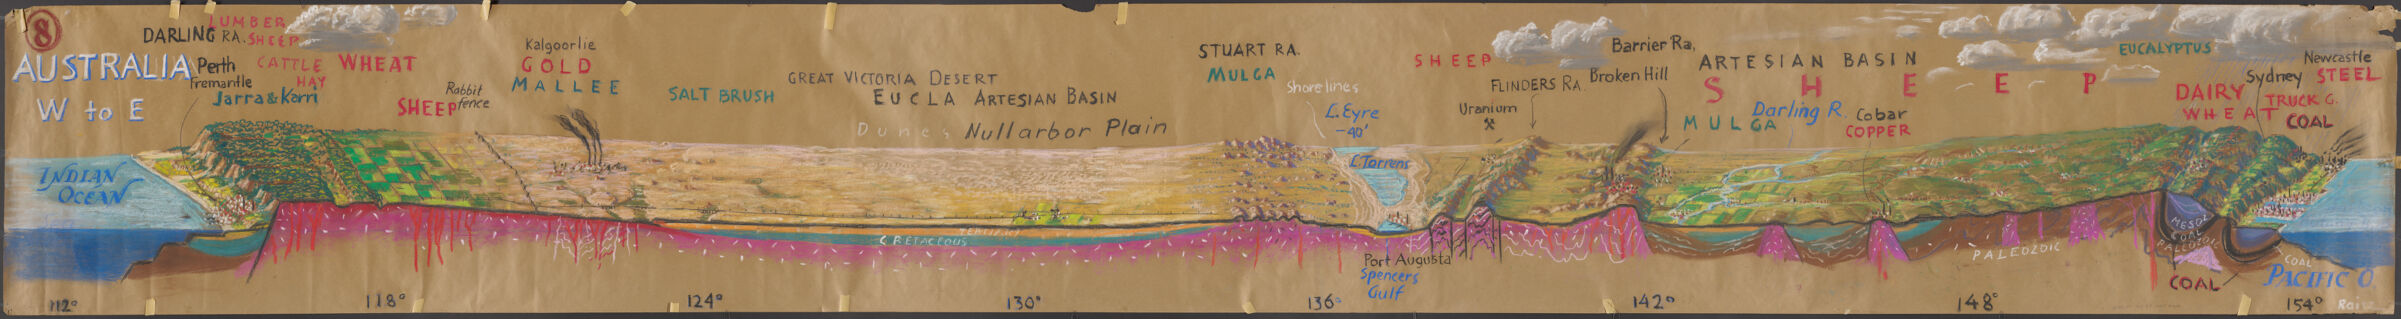 8
AUSTRALIA
W to E
DARLING RA.
LUMBER
SHEEP
Perth
Fremantle
CATTLE
HAY
Jarra & Karri
WHEAT
SHEEP
Rabbit
fence
Kalgoorlie
GOLD
MALLEE
SALT BRUSH
GREAT VICTORIA DESERT
EUCLA ARTESIAN BASIN
Dunes
Nullarbor Plain
STUART RA.
MULGA
Shorelines
L. Eyre
-40'
L. Torrens
SHEEP
FLINDERS RA.
Uranium
Barrier Ra.
Broken Hill
ARTESIAN BASIN
SHEEP
MULGA
Darling R.
Cobar
COPPER
EUCALYPTUS
DAIRY
WHEAT
Newcastle
Sydney
STEEL
TRUCK G.
COAL
INDIAN
OCEAN
TERTIARY
CRETACEOUS
Port Augusta
Spencers
Gulf
PALEOZOIC
MESOZ
COAL
PALEOZOIC
COAL
COAL
PACIFIC O.
112°
118°
124°
130°
136°
142°
148°
154°
Raisz